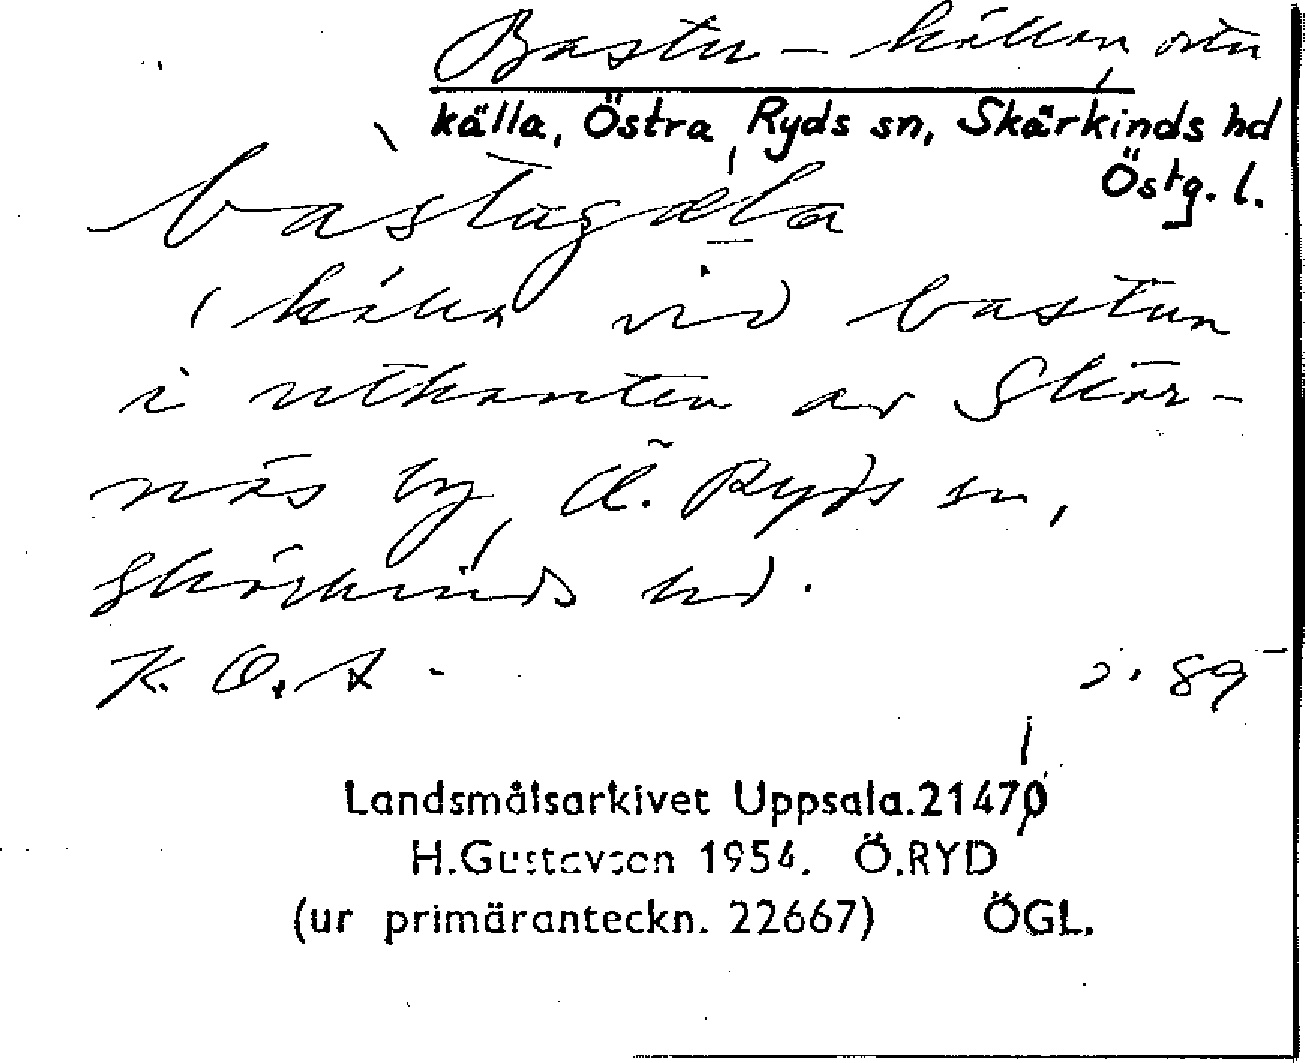 Bastu-källan, ortn
källa, Östra Ryds sn, Skärkinds hd
Östg. l.
bàstugæ̀la
(källa vid bastun
i utkanten av Skär-
näs by, Ö. Ryds sn,
Skärkinds hd.
K. O. A. s. 89
Landsmålsarkivet Uppsala.21470
H.Gustavson 1954. Ö.RYD
(ur primäranteckn. 22667) ÖGL.